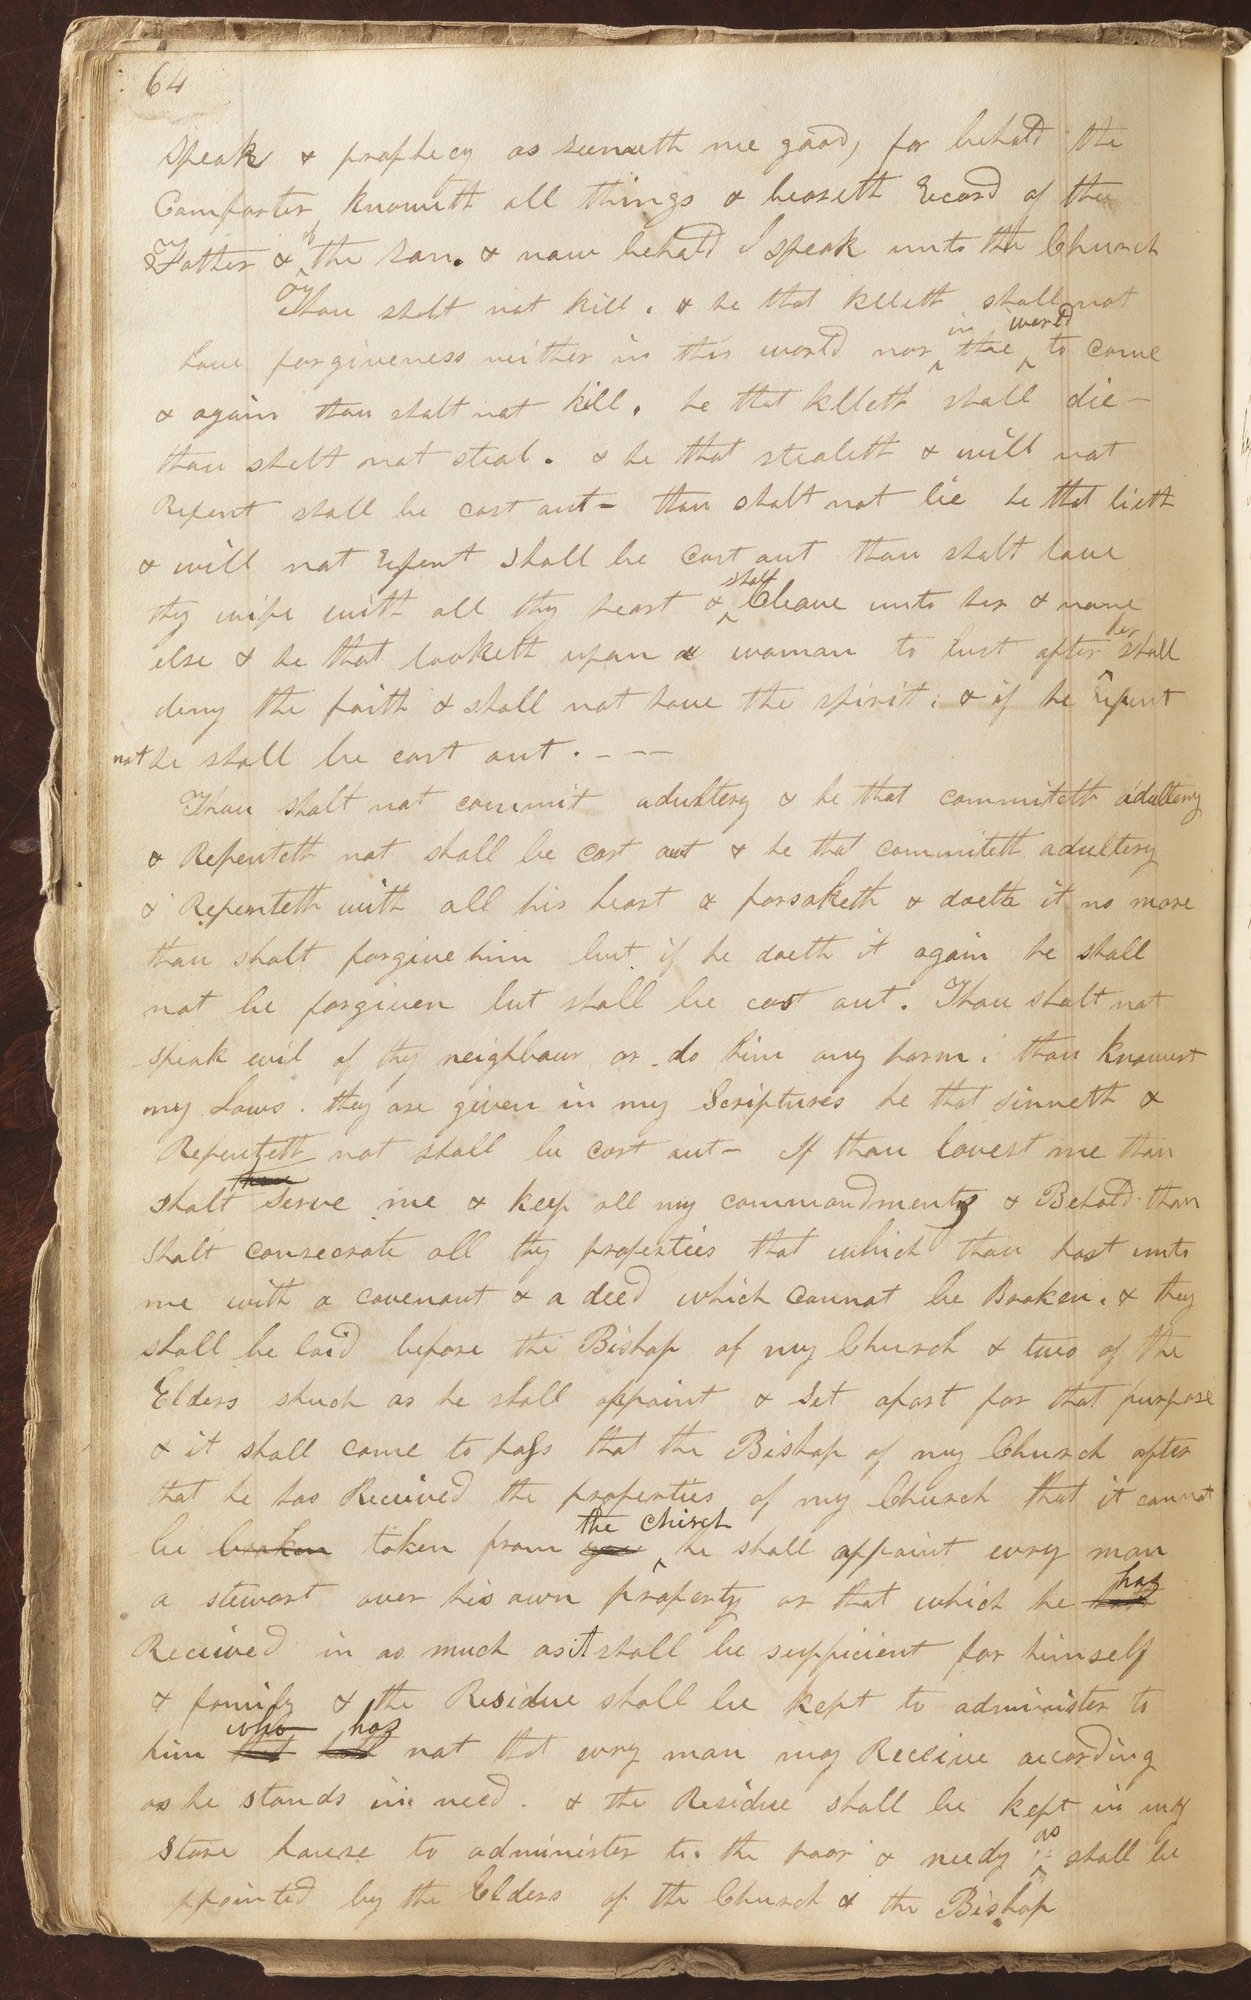 64
Speak & prophecy as seemeth me good, for behold the
Comforter knoweth all things & beareth Record of the
Father & of the Son. & now behold I speak unto the Church
Thou shalt not kill. & he that killeth shall not
have forgiveness neither in this world nor in the world to come
& again thou shalt not kill. he that killeth shall die—
thou shalt not steal. & he that stealeth & will not
Repent shall be cast out— thou shalt not lie he that lieth
& will not Repent shall be cast out thou shalt love
thy wife with all thy heart & shall Cleave unto her & none
else & he that looketh upon a woman to lust after her shall
deny the faith & shall not have the spirit. & if he repent
not he shall be cast out. ———
Thou shalt not commit adultery & he that commiteth adultery
& Repenteth not shall be cast out & he that commiteth adultery
& Repenteth with all his heart & forsaketh & doeth it no more
thou shalt forgive him but if he doeth it again he shall
not be forgiven but shall be cast out. Thou shalt not
speak evil of thy neighbour or do him any harm. thou knowest
my Laws. they are given in my Scriptures he that sinneth &
Repenteth not shall be cast out— If thou lovest me thou
shalt thou serve me & keep all my commandments & Behold thou
Shalt consecrate all thy properties that which thou hast unto
me with a covenant & a deed which cannot be Broken. & they
shall be laid before the Bishop of my Church & two of the
Elders shuch as he shall appoint & set apart for that purpose
& it shall come to pass that the Bishop of my Church after
that he has Received the properties of my Church that it cannot
be broken taken from you the chirch he shall appoint every man
a stewart over his own property or that which he hath has
Received in as much as it shall be sufficient for himself
& family & the Residue shall be kept to administer to
him that who hath has not that every man may Receive according
as he stands in need. & the Residue shall be kept in my
Store house to administer to the poor & needy as shall be
appointed by the Elders of the Church & the Bishop